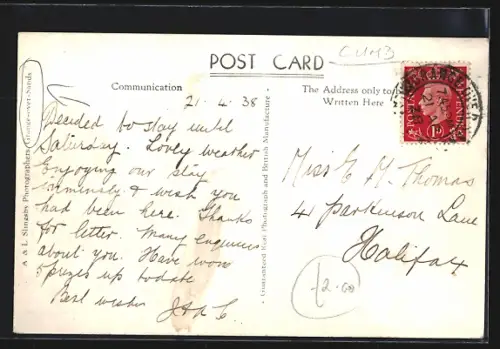 CUMB
POST CARD
Communication
The Address only to
Written Here
21.4.38
Decided to stay until
Saturday. Lovely weather
Enjoying our stay
immensely & wish you
had been here. Thanks
for letter. Many enquiries
about you. Have won
5 prizes up to date
Best wishes
J & C
Miss E. M. Thomas
4 Parkinson Lane
Halifax
A & L Slingsby Photographers Grange-over-Sands
Guaranteed Real Photograph and British Manufacture
POSTAGE
REVENUE
1D
GRANGE OVER
21
38
£2.60